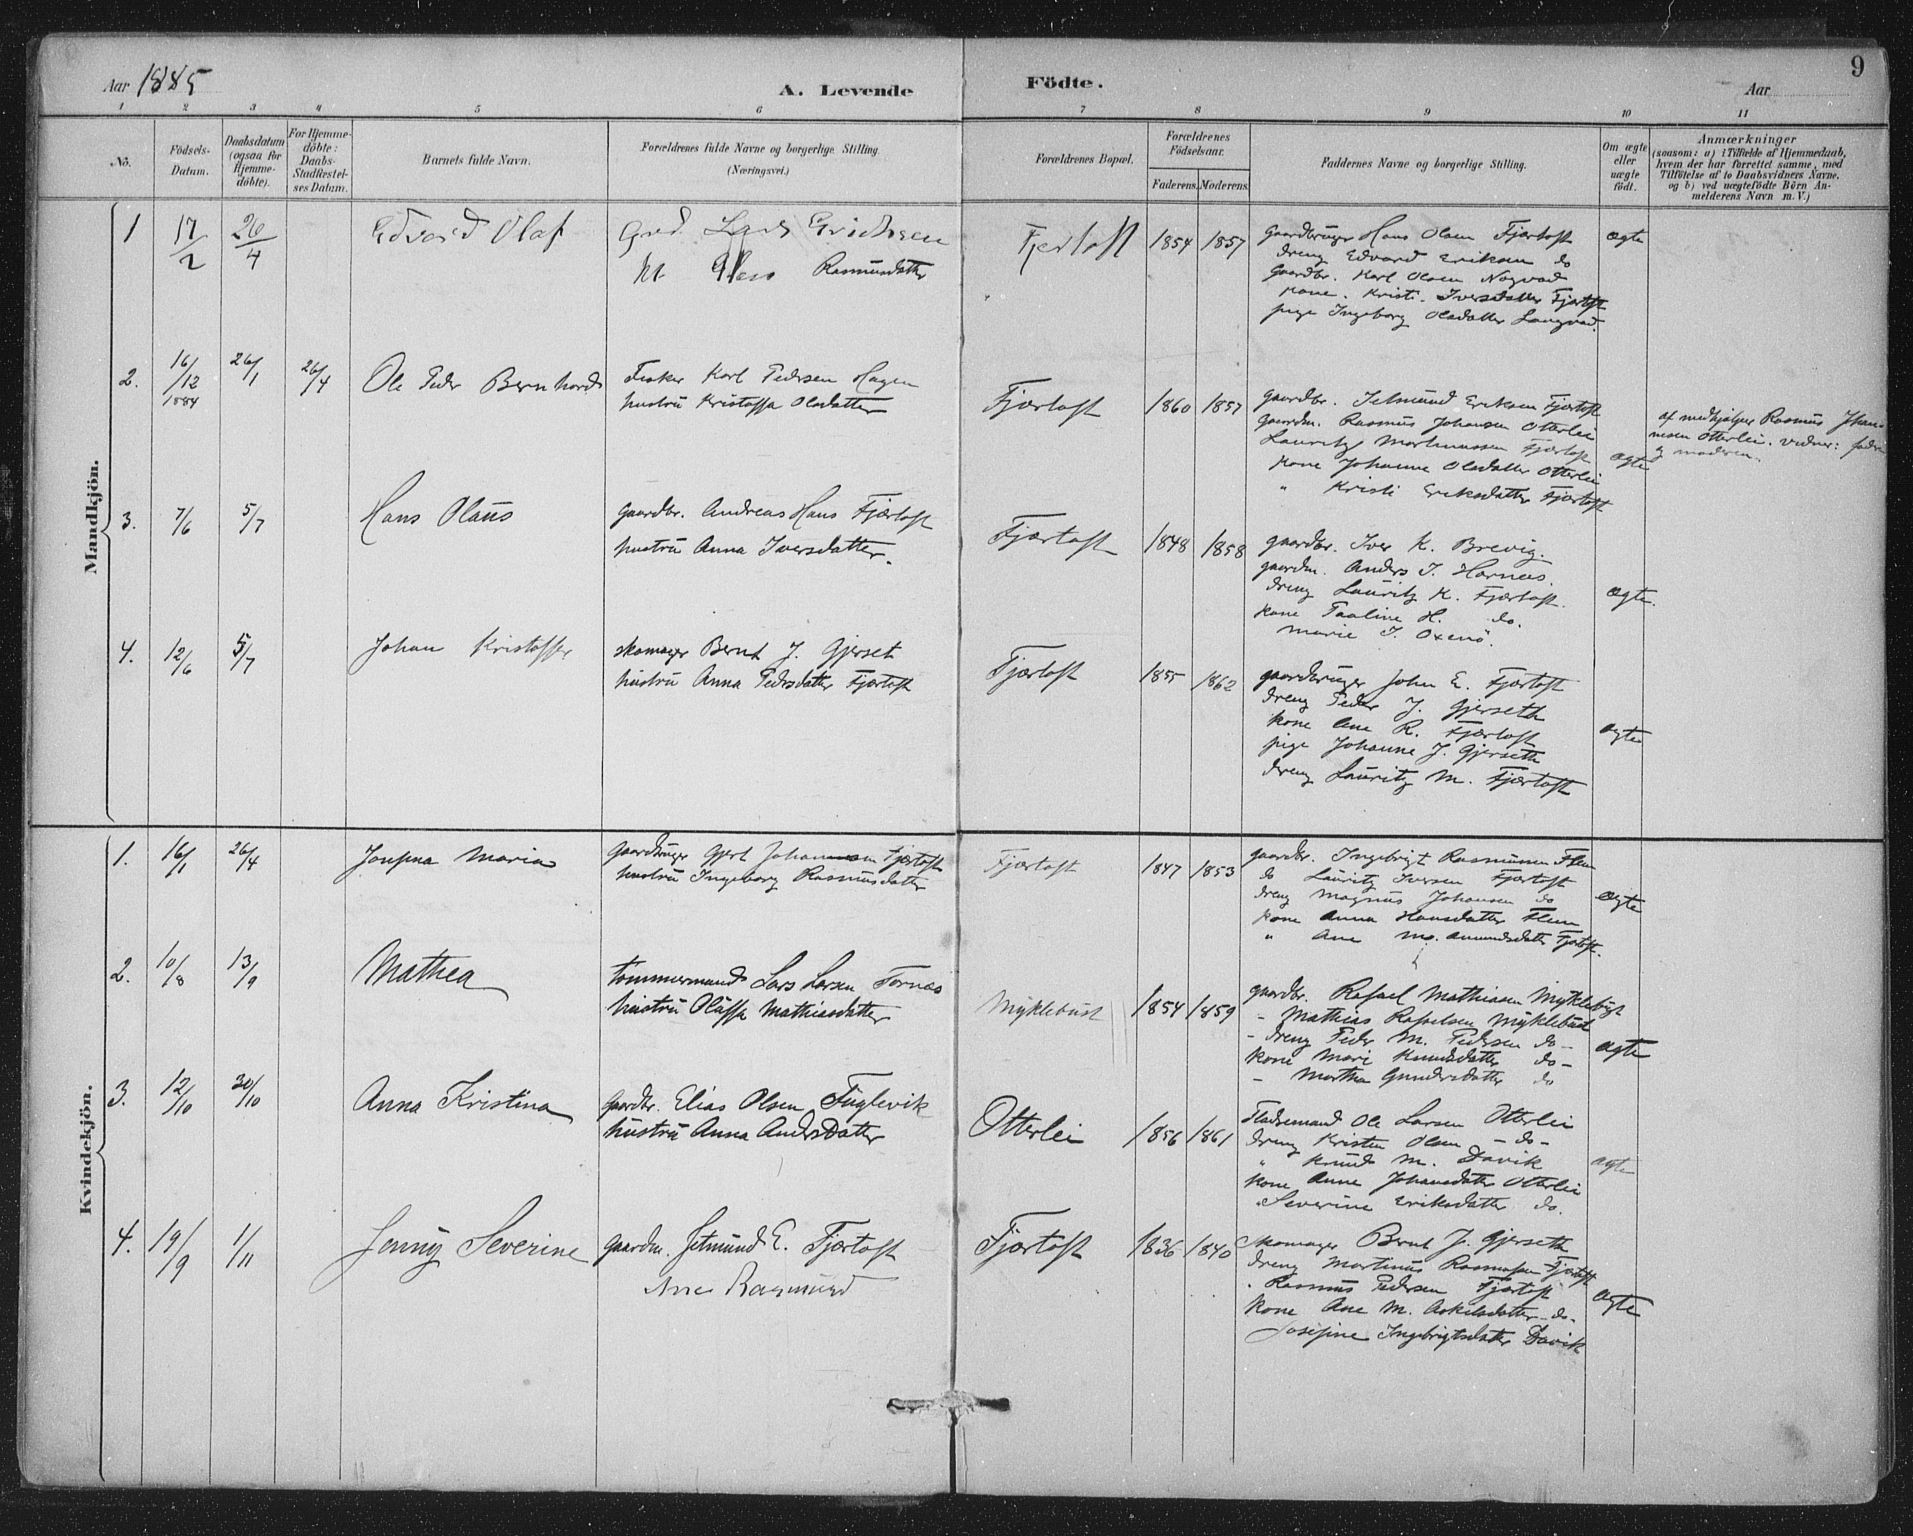 Aar 1885
A. Levende Födte.
Aar
9
1 2 3 4 5 6 7 8 9 10 11
No.
Födsels-Datum.
Daabsdatum (ogsaa for Hjemme-döbte).
For Hjemme-döbte: Daabs-Stadfæstel-ses Datum.
Barnets fulde Navn.
Forældrenes fulde Navne og borgerlige Stilling. (Næringsvei.)
Forældrenes Bopæl.
Forældrenes Födselsaar.
Faderens. Moderens.
Faddernes Navne og borgerlige Stilling.
Om ægte eller uægte födt.
Anmærkninger
(saasom: a) i Tilfælde af Hjemmedaab,
hvem der har forrettet samme, med
Tilföielse af to Daabsvidners Navne,
og b) ved uægtefödte Börn An-
melderens Navn m. V.)
Mandkjön.
1 17/2 26/4 Edvard Olaf
Lars Erichsen
Rasmusdatter
Fjertoft 1854 1857
gaardbruger Hans Olsen Fjærtoft
dreng Edvard Eriksen do
gaardbr. Karl Olsen Nogvad
kone. Kristi. Iversdatter Fjærtoft
pige Ingeborg Olsdatter Longvad.
ægte
2. 16/12 1884 26/1 26/4 Ole Peder Bernhard
Fisker Karl Pedersen Hagen
hustru Kristoffa Olsdatter
Fjærtoft 1860 1857
gaardbr. Jetmund Eriksen Fjærtoft
gaardm. Rasmus Johansen Otterlei
Lauritz Martinussen Fjærtoft
kone Johanne Olsdatter Otterlei
" Kristi Eriksdatter Fjærtoft
ægte
af medhjælper Rasmus Johan-
nesen Otterlei. vidner: faderen
og moderen.
3. 7/6 5/7 Hans Olaus
gaardbr. Andreas Hans Fjærtoft
hustru Anna Iversdatter.
Fjærtoft 1848 1858
gaardbr. Iver K. Brevig.
gaardm. Anders J. Harnæs.
dreng Lauritz K. Fjærtoft.
kone Paaline H. do.
Marie J. Oxenö.
ægte.
4. 12/6 5/7 Johan Kristoffer
skomager Bernt J. Gjerset
hustru Anna Pedersdatter Fjærtoft
Fjærtoft 1855 1862
gaardbruger John E. Fjærtoft
dreng Peder J. Gjerseth
kone Ane R. Fjærtoft
pige Johanne J. Gjerseth
dreng Lauritz M. Fjærtoft
ægte
Kvindekjön.
1. 16/1 26/4 Josefina Maria
gaardbruger Gjert Johannesen Fjærtoft
hustru Ingeborg Rasmusdatter
Fjærtoft 1847 1853
gaardbr. Ingebrigt Rasmussen Flem
do Lauritz Iversen Fjærtoft
dreng Magnus Johansen do
kone Anna Hansdatter Flem
" Ane M. Amundsdatter Fjærtoft.
ægte
2. 10/8 13/9 Mathea
tømmermand Lars Larsen Tornæs
hustru Oluffa Mathiasdatter
Myklebust 1854 1859
gaardbr. Rafael Mathiasen Myklebust
- Mathias Rafaelsen Myklebust
- dreng Peder M. Pedersen do -
kone Mari Knudsdatter do -
- Martha Gundersdatter do
ægte
3. 12/10 30/10 Anna Kristina
gaardbr. Elias Olsen Fuglevik
hustru Anna Andersdatter
Otterlei 1856 1861
Pladsemand Ole Larsen Otterlei
dreng Kristen Olsen - do -
" Knud M. Davik
kone Anne Johansdatter Otterlei
Severine Eriksdatter do.
ægte
4. 19/9 1/11 Jenny Severine
gaardm. Jetmund E. Fjærtoft
Ane Rasmusd
Fjærtoft 1836 1840
Skomager Bernt J. Gjerseth
dreng Martinus Rasmussen Fjærtoft
. Rasmus Pedersen Fjærtoft
kone Ane M. Askilsdatter - do -
Josefine Ingebrigtsdatter Davik
ægte